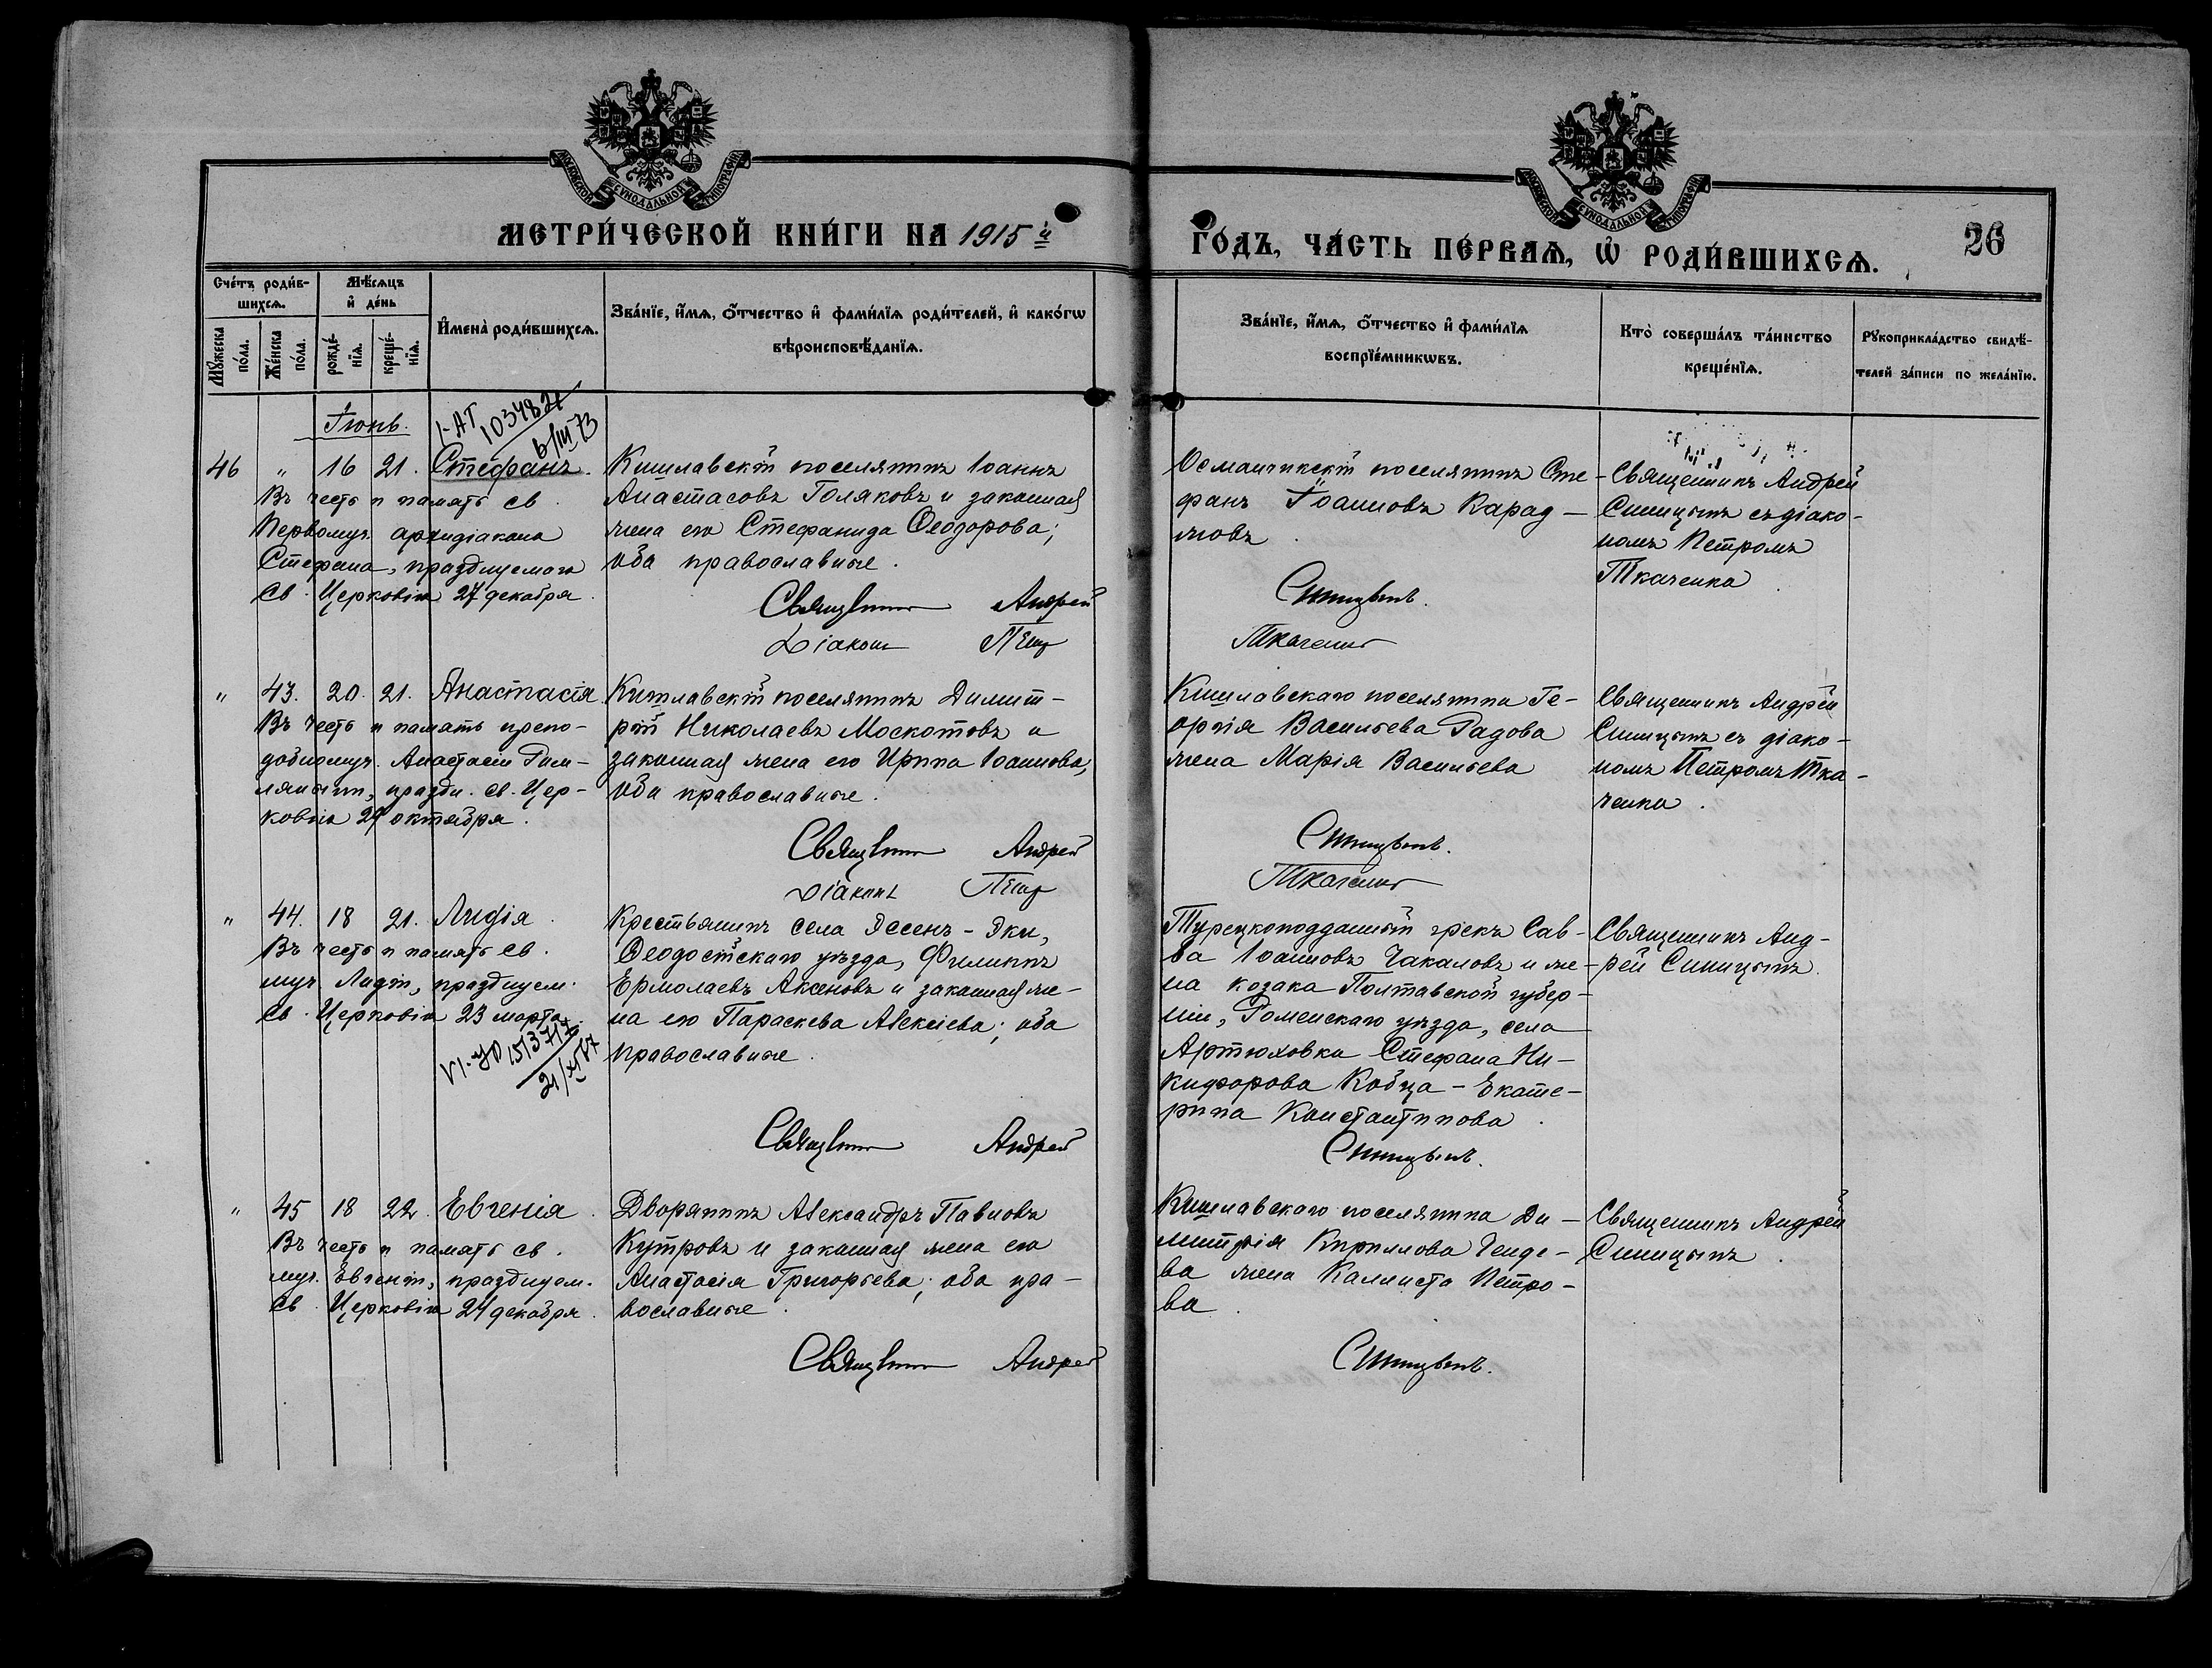 МЕТРИ́ЧЕСКОЙ КНИ́ГИ НА 1915 й
ГО́ДЪ, ЧА́СТЬ ПЕ́РВАѦ, Ѡ РОДИ́ВШИХСѦ.
26
МОСКОВСКОЙ СУНОДАЛЬНОЙ ТИПОГРАФІИ
МОСКОВСКОЙ СУНОДАЛЬНОЙ ТИПОГРАФІИ
Сче́тъ роди́в-
шихсѧ.
Мѣ́сѧцъ
и де́нь
Мꙋжеска по́ла.
Же́нска по́ла.
рожде́-
нїѧ.
креще́-
нїѧ.
И҆мена̀ роди́вшихсѧ.
Зва́нїе, и҆́мѧ, ѻ҆́тчество и҆ фами́лїѧ роди́телей, и҆ како́гѡ
вѣроисповѣ́данїѧ.
Зва́нїе, и҆́мѧ, ѻ҆́тчество и҆ фами́лїѧ
воспрїе́мникѡвъ.
Кто̀ соверша́лъ та́инство
креще́нїѧ.
Рꙋкоприкла́дство свидѣ́-
телей за́писи по жела́нїю.
Іюнь.
I-АТ 103482
6/III 73
46 " 16 21. Стефанъ.
Въ честь и память св.
Первомуч. архидіакона
Стефана, празднуемаго
св. Церковію 27 декабря.
Кишлавскій поселянинъ Іоаннъ
Анастасовъ Голяковъ и законная
жена его Стефанида Ѳеодорова;
оба православные.
Священникъ Андрей
Діаконъ Петръ
Османчикскій поселянинъ Сте-
фанъ Іоанновъ Карад-
жовъ
Синицынъ.
Ткаченко
Священникъ Андрей
Синицынъ съ діако-
номъ Петромъ
Ткаченка
" 43. 20. 21. Анастасія
Въ честь и память препо-
добномуч. Анастасіи Рим-
ляныни, праздн. св. Цер-
ковію 29 октября.
Кишлавскій поселянинъ Димит-
рій Николаевъ Москотовъ и
законная жена его Ирина Іоаннова,
оба православные.
Священникъ Андрей
Діаконъ Петръ
Кишлавскаго поселянина Ге-
оргія Васильева Радова
жена Марія Васильева
Синицынъ.
Ткаченко
Священникъ Андрей
Синицынъ съ діако-
номъ Петромъ Тка-
ченка.
" 44. 18 21. Лидія.
Въ честь и память св.
муч. Лидіи, празднуем.
св. Церковію 23 марта.
VI-УО 513717
21/XI 87
Крестьянинъ села Эссенъ-Эки,
Ѳеодосійскаго уѣзда, Филиппъ
Ермолаевъ Аксеновъ и законная же-
на его Параскева Алексіева; оба
православные.
Священникъ Андрей
Турецкоподданный грекъ Сав-
ва Іоанновъ Чакаловъ и же-
на козака Полтавской губер-
ніи, Роменскаго уѣзда, села
Артюховка Стефана Ни-
кифорова Кобца - Екате-
рина Константинова.
Синицынъ.
Священникъ Анд-
рей Синицынъ.
" 45 18 22. Евгенія.
Въ честь и память св.
муч. Евгеніи, празднуем.
св. Церковію 24 декабря.
Дворянинъ Александръ Павловъ
Кутровъ и законная жена его
Анастасія Григорьева; оба пра-
вославные.
Священникъ Андрей
Кишлавскаго поселянина Ди-
митрія Кириллова Генде-
ва жена Каллиста Петро-
ва.
Синицынъ.
Священникъ Андрей
Синицынъ.